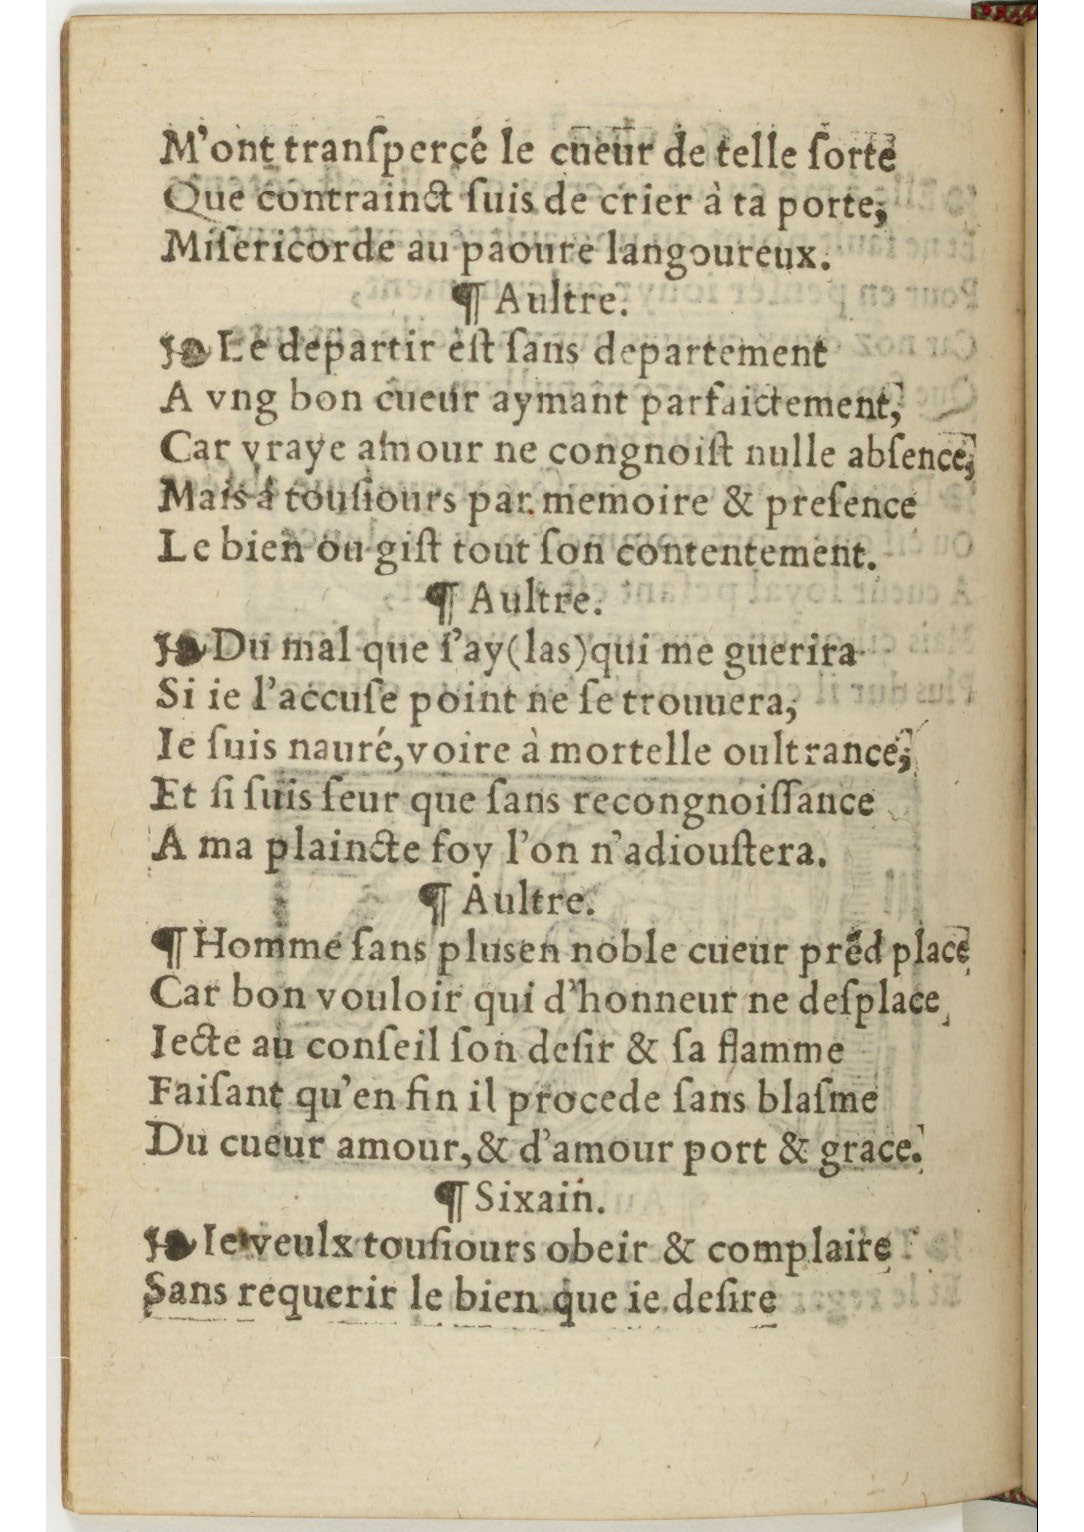 M'ont tranſperçé le cueur de telle ſorte
Que contrainct ſuis de crier à ta porte,
Miſericorde au paoure langoureux.
¶ Aultre.
❧ Le departir eſt ſans departement
A vng bon cueur aymant parfaictement,
Car vraye amour ne congnoiſt nulle abſence,
Mais á touſiours par memoire & preſence
Le bien ou giſt tout ſon contentement.
¶ Aultre.
❧ Du mal que i'ay (las) qui me guerira
Si ie l'accuſe point ne ſe trouuera,
Ie ſuis nauré, voire à mortelle oultrance,
Et ſi ſuis ſeur que ſans recongnoiſſance
A ma plaincte foy l'on n'adiouſtera.
¶ Aultre.
¶ Homme ſans plusen noble cueur prẽd place
Car bon vouloir qui d'honneur ne deſplace
Iecte au conſeil ſon deſir & ſa flamme
Faiſant qu'en fin il procede ſans blaſme
Du cueur amour, & d'amour port & grace.
¶ Sixain.
❧ Ie veulx touſiours obeir & complaire
Sans requerir le bien que ie deſire